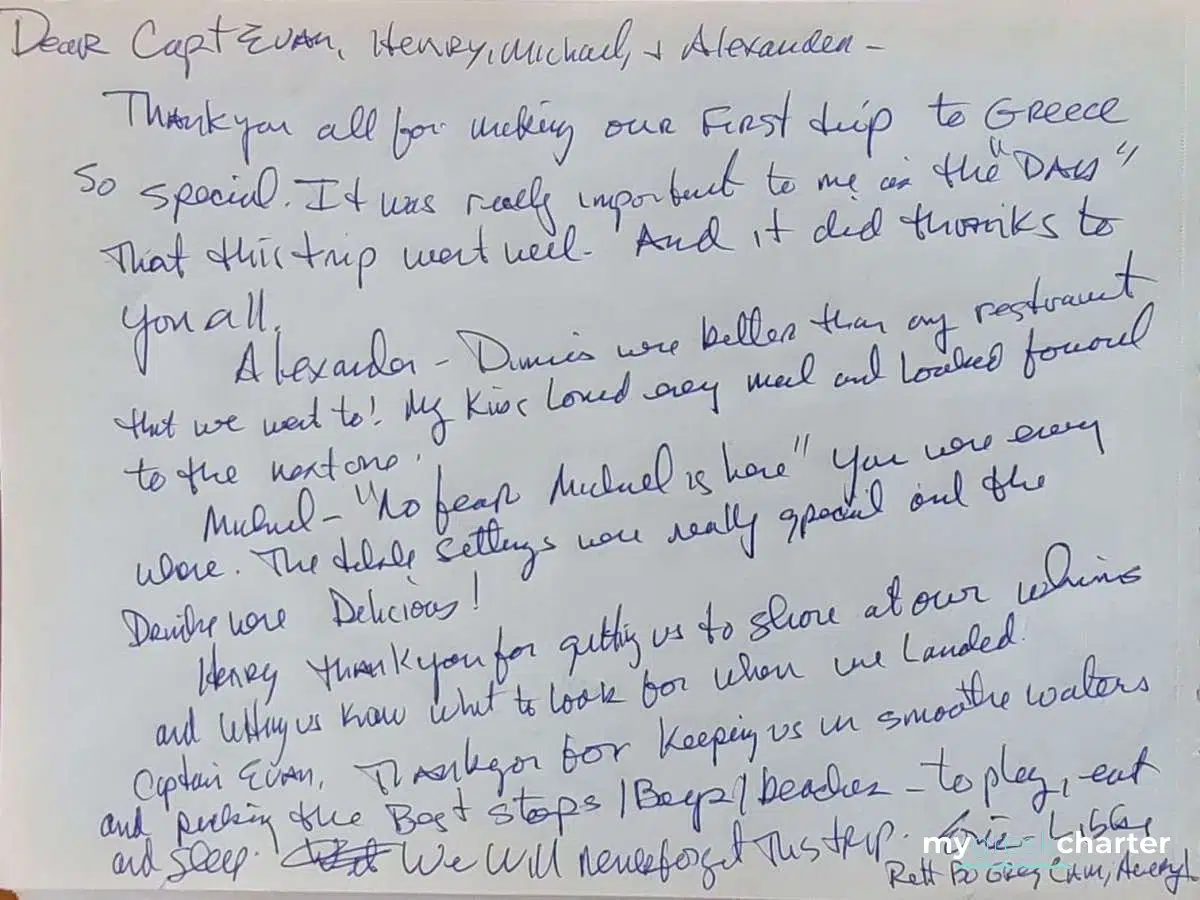 Dear Capt Evan, Henry, Michael, + Alexander -
Thank you all for making our First trip to Greece
so special. It was really important to me as the "DAD"
That this trip went well. And it did thanks to
you all.
Alexander - Dinners were better than any restraunt
that we went to! My Kids Loved every meal and Looked forward
to the next one.
Michael - "No fear Michael is here" You were every
where. The table settings were really special and the
Drinks were Delicious!
Henry thank you for getting us to shore at our whims
and letting us know what to look for when we Landed.
Captain Evan, Thank you for Keeping us in smoothe waters
and picking the Best stops / Bays / beaches - to play, eat
and sleep. We will never forget This trip. Libby
Rett Bo Greg Cam, Avery
mycharter